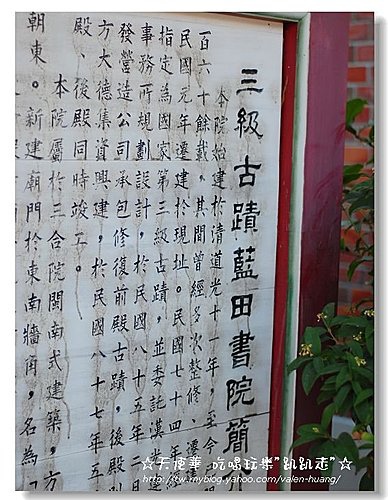 三級古蹟藍田書院簡
本院始建於清道光十一年，至今
百六十餘載。其間曾經多次整修、遷
民國元年遷建於現址。民國七十四
指定為國家第三級古蹟，並委託漢
事務所規劃設計，於民國八十五年二月
發營造公司承包修復前殿古蹟，後殿則
方大德集資興建，於民國八十七年五
殿、後殿同時竣工。
本院屬於三合院閩南式建築，方
朝東。新建廟門於東南牆角，名為
☆天使華 吃喝玩樂"趴趴走"☆
http://tw.myblog.yahoo.com/valen-huang/